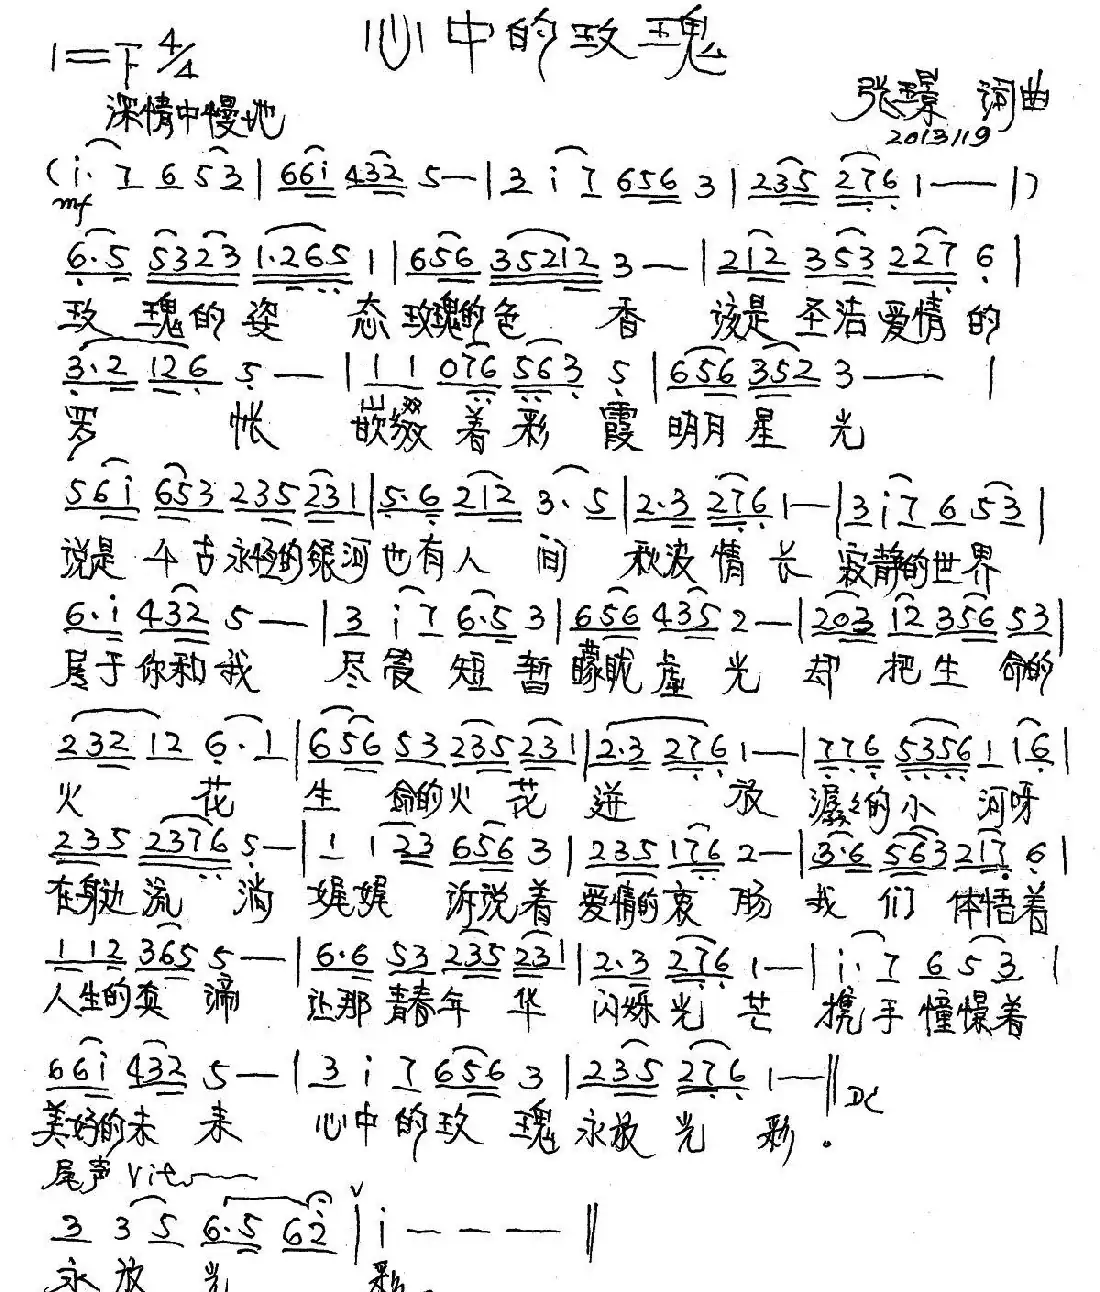 心中的玫瑰
1=下 4/4
深情中慢地
张璟 词曲
2013119
(i· 7 6 5 3 | 6 6 i 4 3 2 5 — | 3 i 7 6 5 6 3 | 2 3 5 2 7 6 1 — — | )
mf
6·5 5323 1·265 1 | 656 35212 3 — | 212 353 227 6 |
玫瑰的姿态玫瑰的色香该是圣洁爱情的
3·2 126 5 — | 1 1 076 563 5 | 656 352 3 — — |
罗帐嵌缀着彩霞明月星光
56i 653 235 231 | 5·6 212 3·5 | 2·3 276 1 — | 3 i 7 6 53 |
说是千古永恒的银河也有人间秋波情长寂静的世界
6·i 432 5 — | 3 i 7 6·5 3 | 656 435 2 — | 203 i2 356 53 |
属于你和我尽管短暂朦胧虚光却把生命的
232 12 6·1 | 656 53 235 231 | 2·3 276 1 — | 776 5356 1 16 |
火花生命的火花迸放潺潺的小河呀
235 2376 5 — | 1 123 656 3 | 235 176 2 — | 3·6 563 217 6 |
在身边流淌娓娓诉说着爱情的衷肠我们体悟着
1 12 365 5 — | 6·6 53 235 231 | 2·3 276 1 — | i· 7 6 5 3 |
人生的真谛让那青春年华闪烁光芒携手憧憬着
66i 432 5 — | 3 i 7 656 3 | 235 276 1 — ‖ DC
美好的未来心中的玫瑰永放光彩.
尾声 Vit
3 3 5 6·5 62 | i — — — ‖
永放光彩.